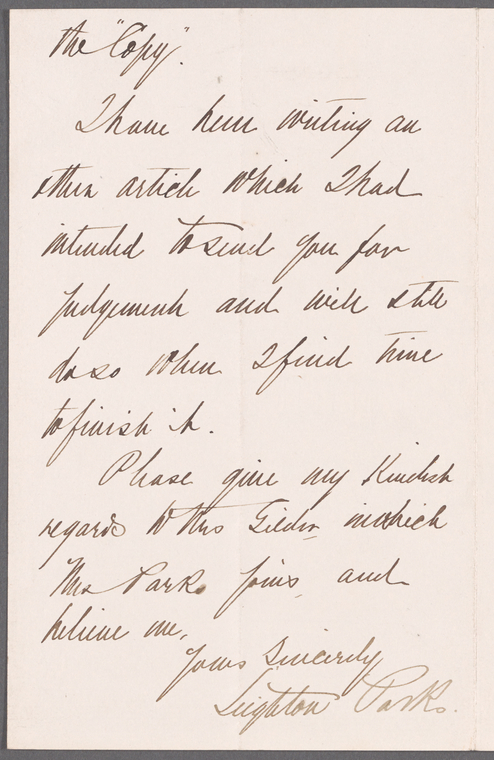 the "Copy".
I have been writing an
other article which I had
intended to send you for
judgement and will still
do so when I find time
to finish it.
Please give my kindest
regards to Mrs Gilder in which
Mrs Parks joins and
believe me,
Yours Sincerely
Leighton Parks.